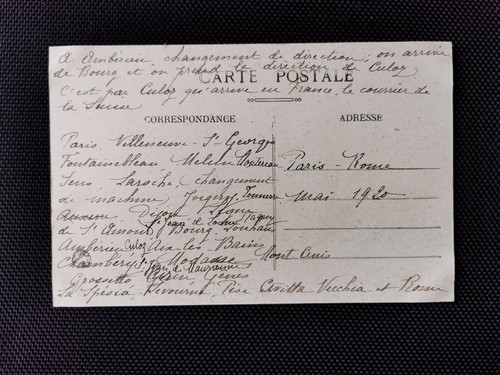 A Ambérieu, changement de direction; on arrive
de Bourg et on prend la direction de Culoz
CARTE POSTALE
C'est par Culoz qu'arrive en France, le courrier de
la Suisse
CORRESPONDANCE
ADRESSE
Paris Villeneuve-St-Georges
Fontainebleau Melun Montereau
Sens Laroche (changement
de machine) Tonnerre
Dijon Ligne
de St Amour Bourg Louhans
Ambérieu Culoz Aix les Bains
Chambéry St Jean de Maurienne Modane Mont Cenis
Grosseto Turin Gênes
La Spezia, Livourne, Pise Civitta Vecchia et Rome
Paris-Rome
Mai 1920